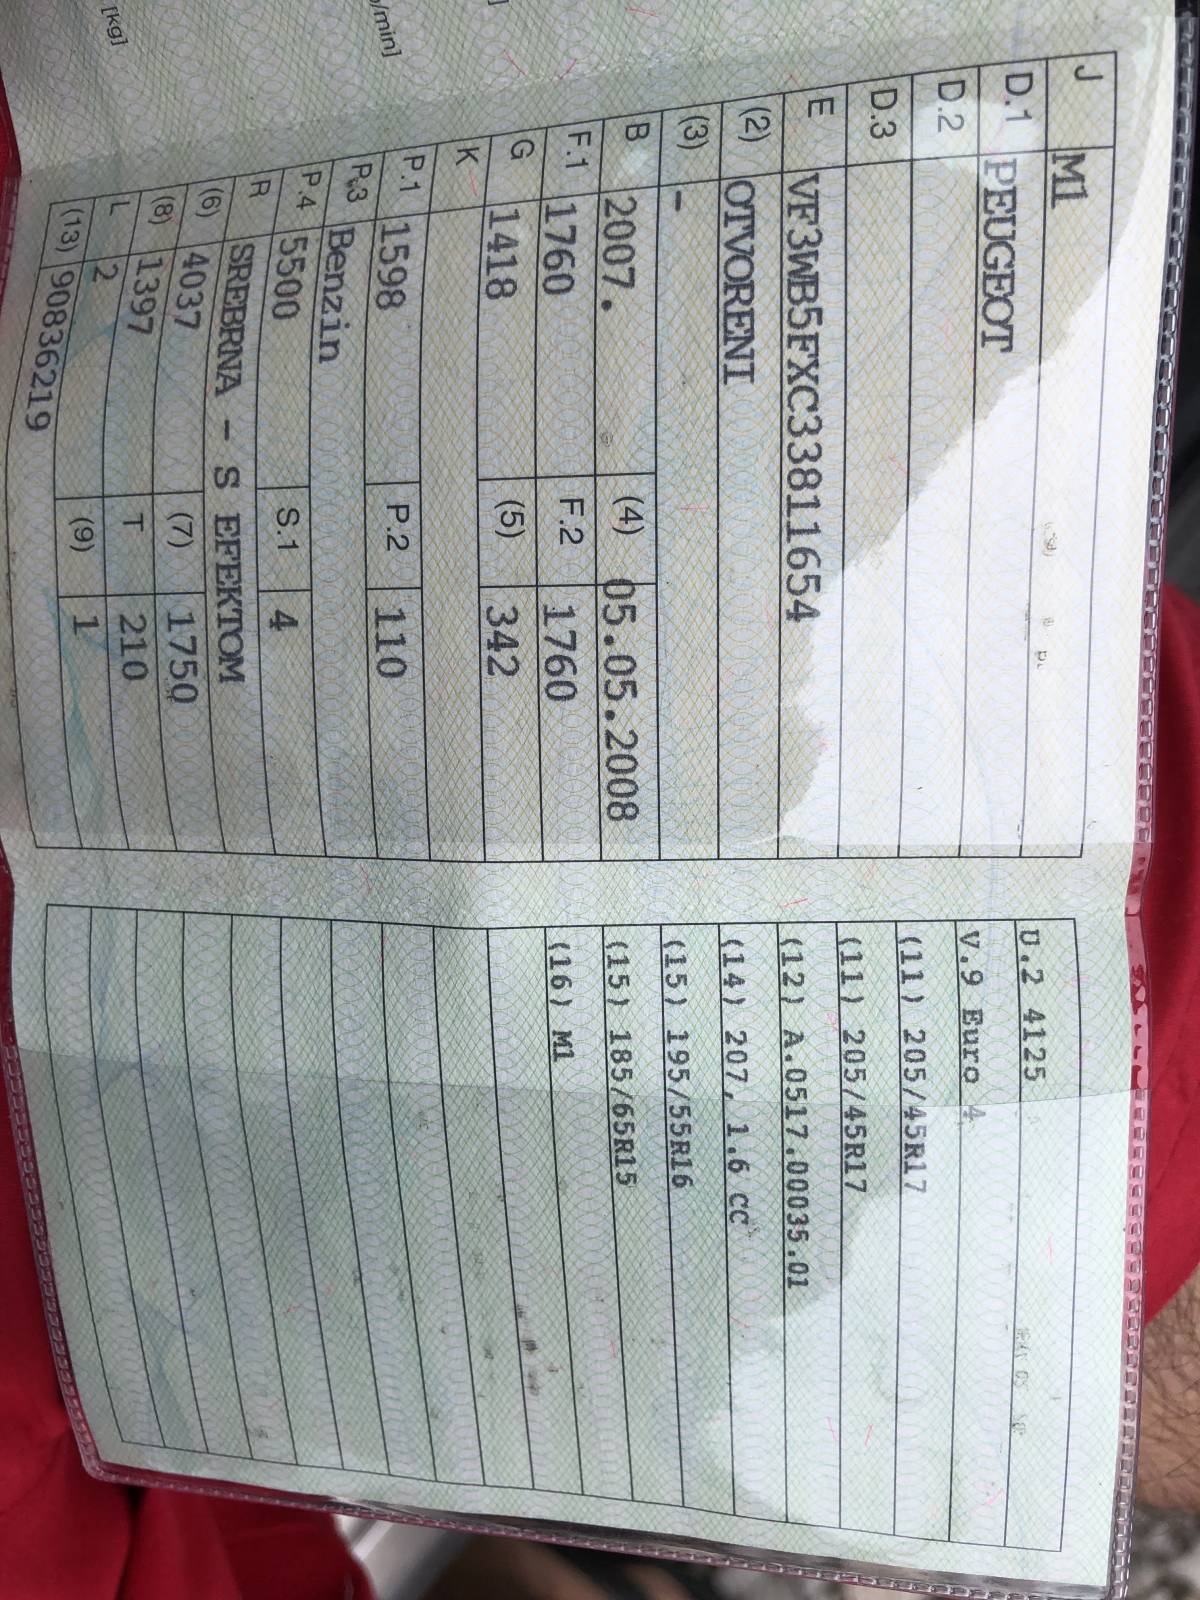 J M1
D.1 PEUGEOT
D.2
D.3
E VF3WB5FXC33811654
(2) OTVORENI
(3) -
B 2007. (4) 05.05.2008
F.1 1760 F.2 1760
G 1418 (5) 342
K
P.1 1598 P.2 110
P.3 Benzin
P.4 5500 S.1 4
R SREBRNA - S EFEKTOM
(6) 4037 (7) 1750
(8) 1397 T 210
L 2
(13) 90836219 (9) 1
/min]
[kg]
U.2 4125
V.9 Euro 4
(11) 205/45R17
(11) 205/45R17
(12) A.0517.00035.01
(14) 207, 1.6 CC
(15) 195/55R16
(15) 185/65R15
(16) M1